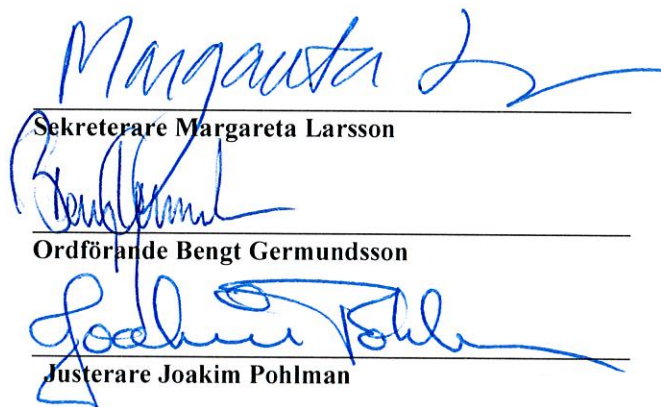 Margareta L
Sekreterare Margareta Larsson
Bengt Germund
Ordförande Bengt Germundsson
Joakim Pohlm
Justerare Joakim Pohlman